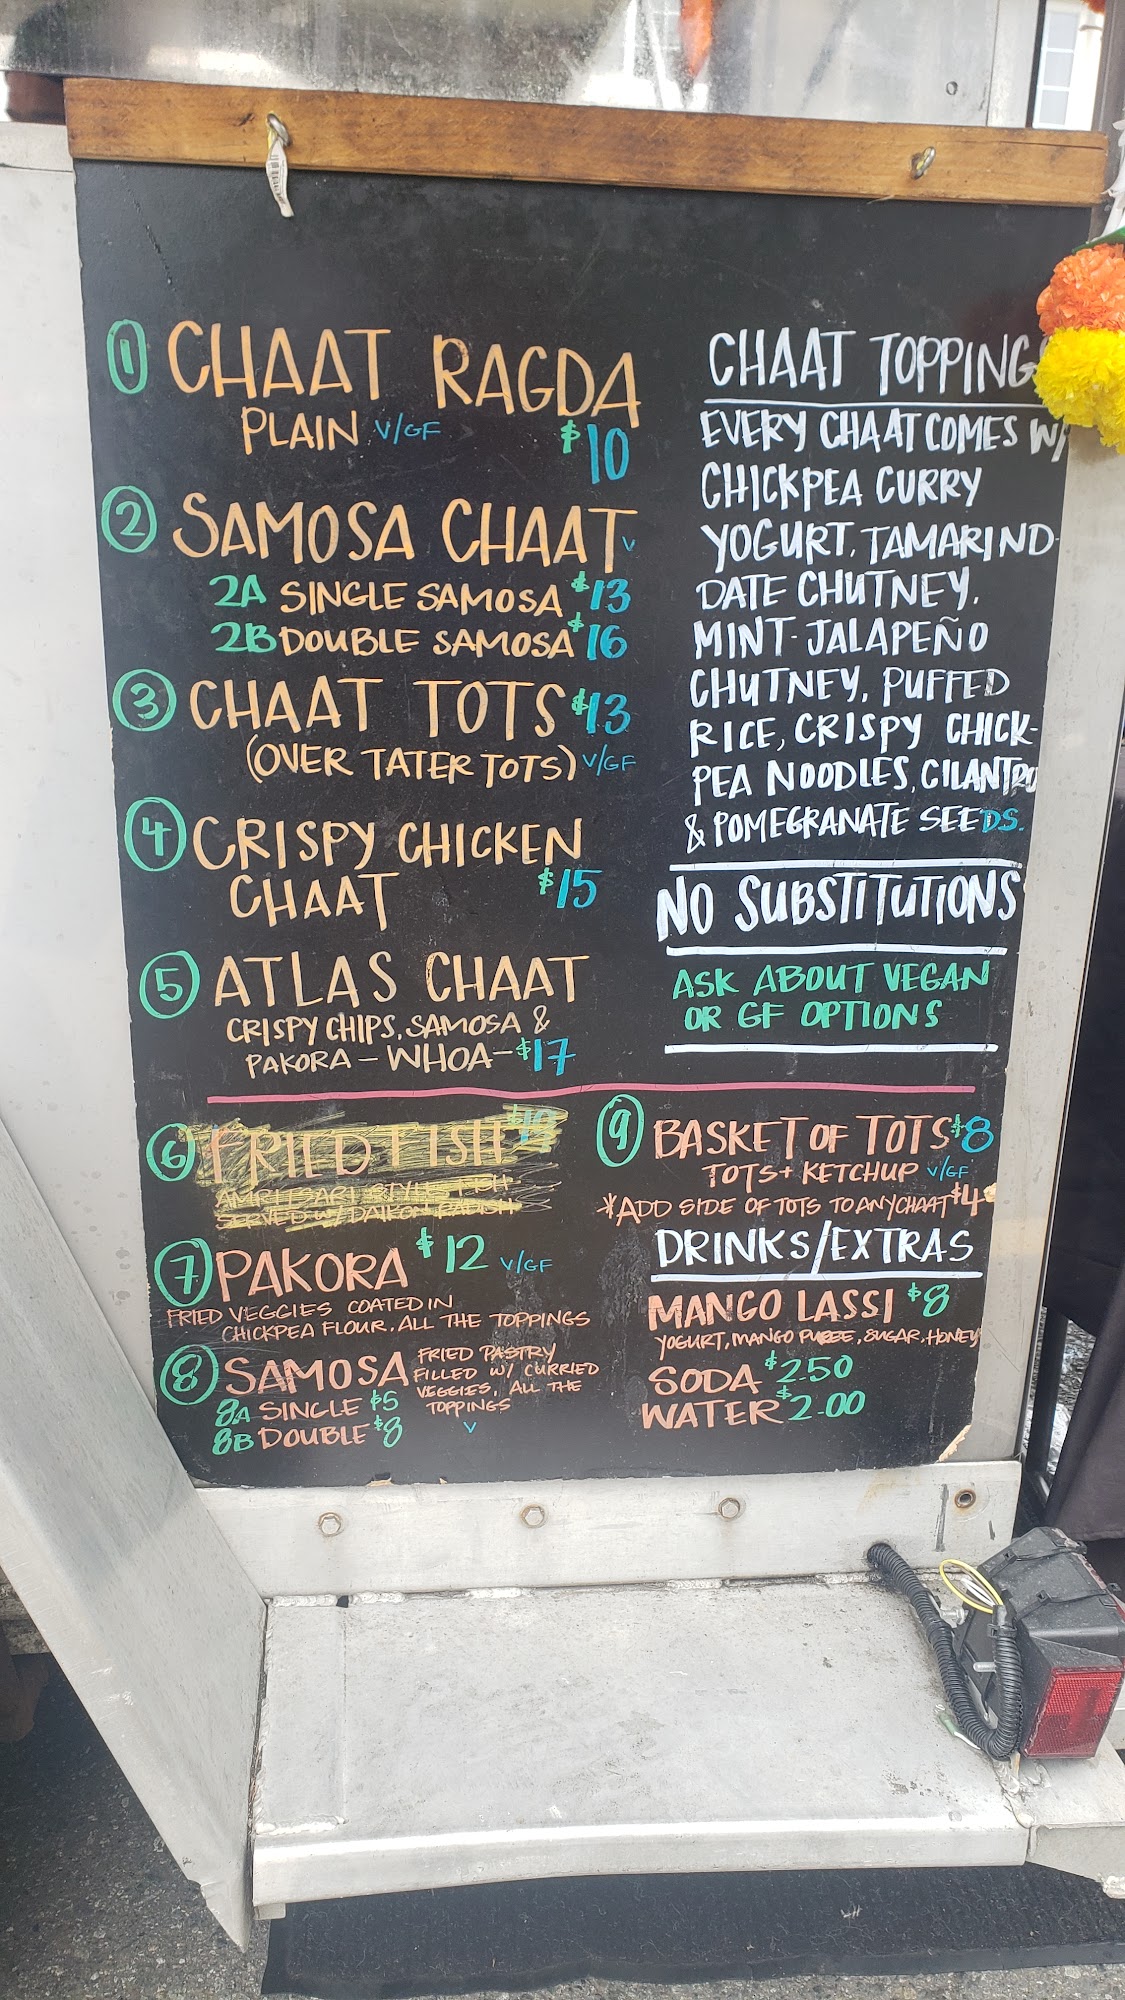 1 CHAAT RAGDA
PLAIN V/GF $10
2 SAMOSA CHAAT V
2A SINGLE SAMOSA $13
2B DOUBLE SAMOSA $16
3 CHAAT TOTS $13
(OVER TATER TOTS) V/GF
4 CRISPY CHICKEN
CHAAT $15
5 ATLAS CHAAT
CRISPY CHIPS, SAMOSA &
PAKORA - WHOA - $17
CHAAT TOPPINGS
EVERY CHAAT COMES W/
CHICKPEA CURRY
YOGURT, TAMARIND-
DATE CHUTNEY,
MINT-JALAPEÑO
CHUTNEY, PUFFED
RICE, CRISPY CHICK-
PEA NOODLES, CILANTRO
& POMEGRANATE SEEDS.
NO SUBSTITUTIONS
ASK ABOUT VEGAN
OR GF OPTIONS
6 FRIED FISH
AMRITSARI STYLE FISH
SERVED W/ DAIKON RADISH
7 PAKORA $12 V/GF
FRIED VEGGIES COATED IN
CHICKPEA FLOUR, ALL THE TOPPINGS
8 SAMOSA FRIED PASTRY
FILLED W/ CURRIED
VEGGIES, ALL THE
TOPPINGS
V
8A SINGLE $5
8B DOUBLE $8
9 BASKET OF TOTS $8
TOTS + KETCHUP V/GF
*ADD SIDE OF TOTS TO ANY CHAAT $4
DRINKS/EXTRAS
MANGO LASSI $8
YOGURT, MANGO PUREE, SUGAR, HONEY
SODA $2.50
WATER $2.00